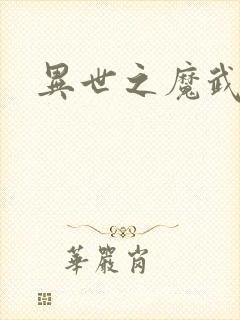 異世之魔武
華嚴肖